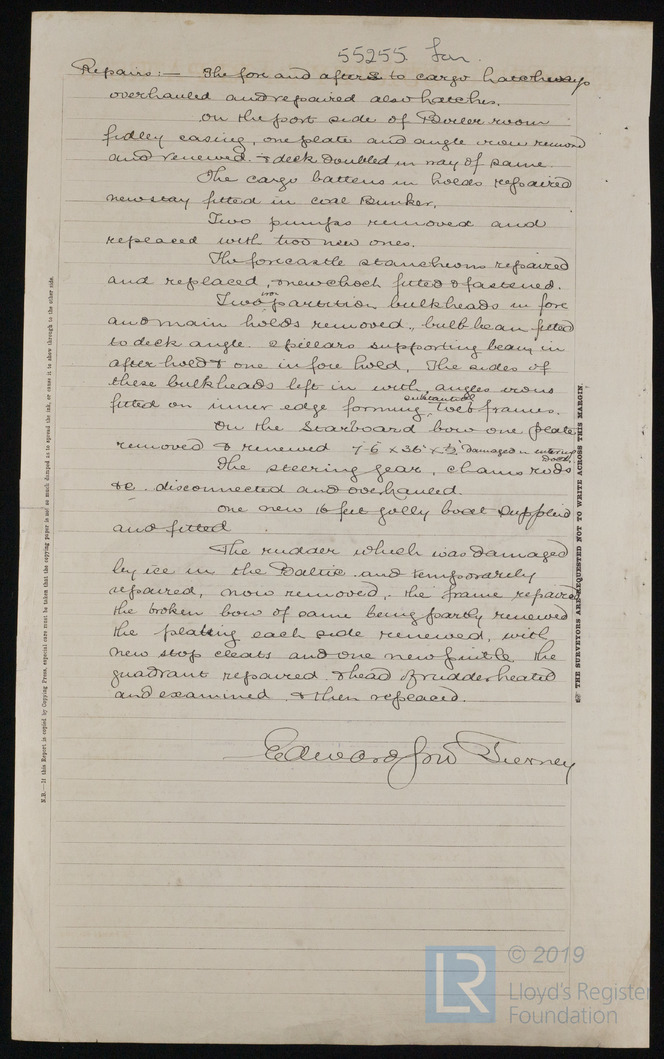 55255 Lon.
Repairs:— The fore and afters to cargo hatchways
overhauled and repaired also hatches.
on the port side of Boiler room
fidley casing, one plate and angle iron removed
and renewed. & deck doubled in way of same.
The cargo battens in holds repaired
new stay fitted in coal Bunker.
Two pumps removed and
replaced with two new ones.
The forecastle stancheons repaired
and replaced, & new chock fitted & fastened.
Two iron partition bulkheads in fore
and main holds removed, bulb beam fitted
to deck angle. 2 pillars supporting beam in
after hold & one in fore hold, The sides of
these bulkheads left in with angles irons
fitted on inner edge forming substantial web frames.
On the Starboard bow one plate
removed & renewed 7'6 x 36" x ½" Damaged in entering Dock.
The steering gear, chains rods
&c. disconnected and overhauled.
one new 16 feet jolly boat supplied
and fitted
The rudder which was damaged
by ice in the Baltic and temporarily
repaired, now removed, the frame repaired
the broken bow of same being partly renewed
the plating each side renewed, with
new stop cleats and one new pintle the
quadrant repaired & head of rudder heated
and examined & then replaced.
Edward Jno Tierney
N.B.—If this Report is copied by Copying Press, especial care must be taken that the copying paper is not so much damped as to spread the ink, or cause it to show through to the other side.
THE SURVEYORS ARE REQUESTED NOT TO WRITE ACROSS THIS MARGIN.
LR
© 2019
Lloyd's Register
Foundation